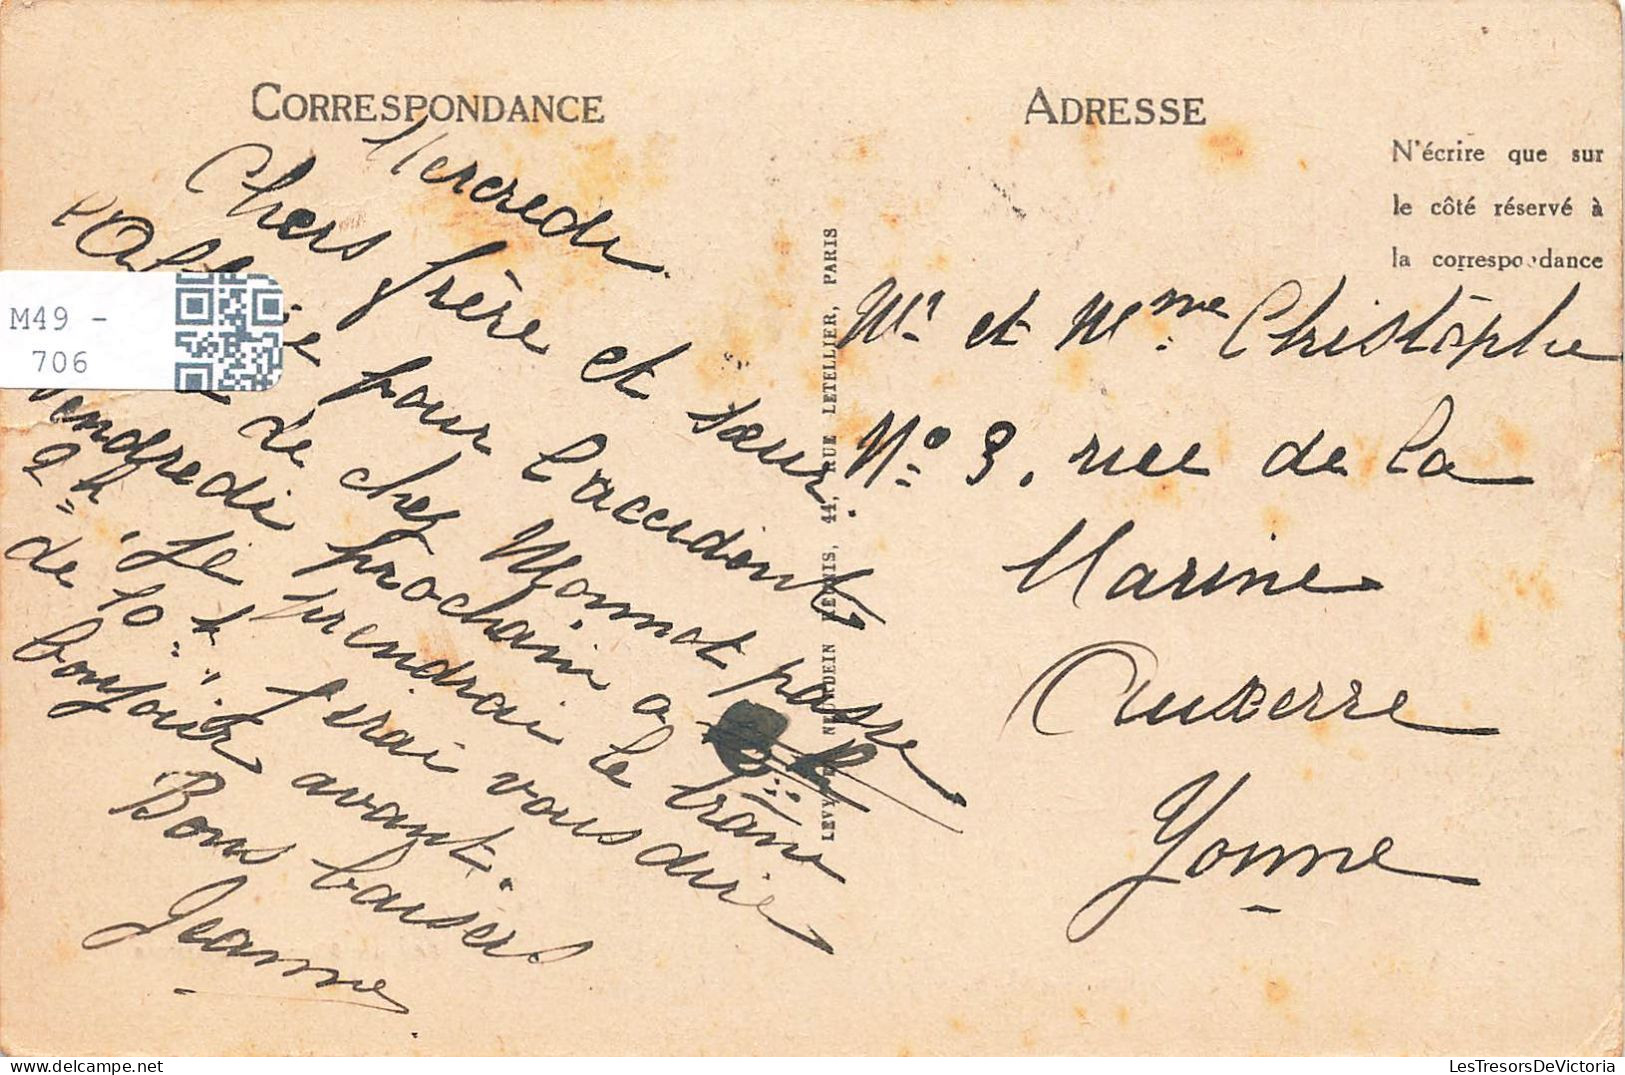 CORRESPONDANCE
Mercredi
Chers frère et sœur.
pour l'accident
de chez Monnot passe
Vendredi prochain a
2h Je prendrai le train
de 10 h J'irai vous dire
bonjour avant.
Bons baisers
Jeanne
LEVY NEURDEIN RÉUNIS, 44, RUE LETELLIER, PARIS
ADRESSE
N'écrire que sur
le côté réservé à
la correspondance
Mr et Mme Christophe
No 3. rue de la
Marine
Auxerre
Yonne
M49 -
706
LesTresorsDeVictoria